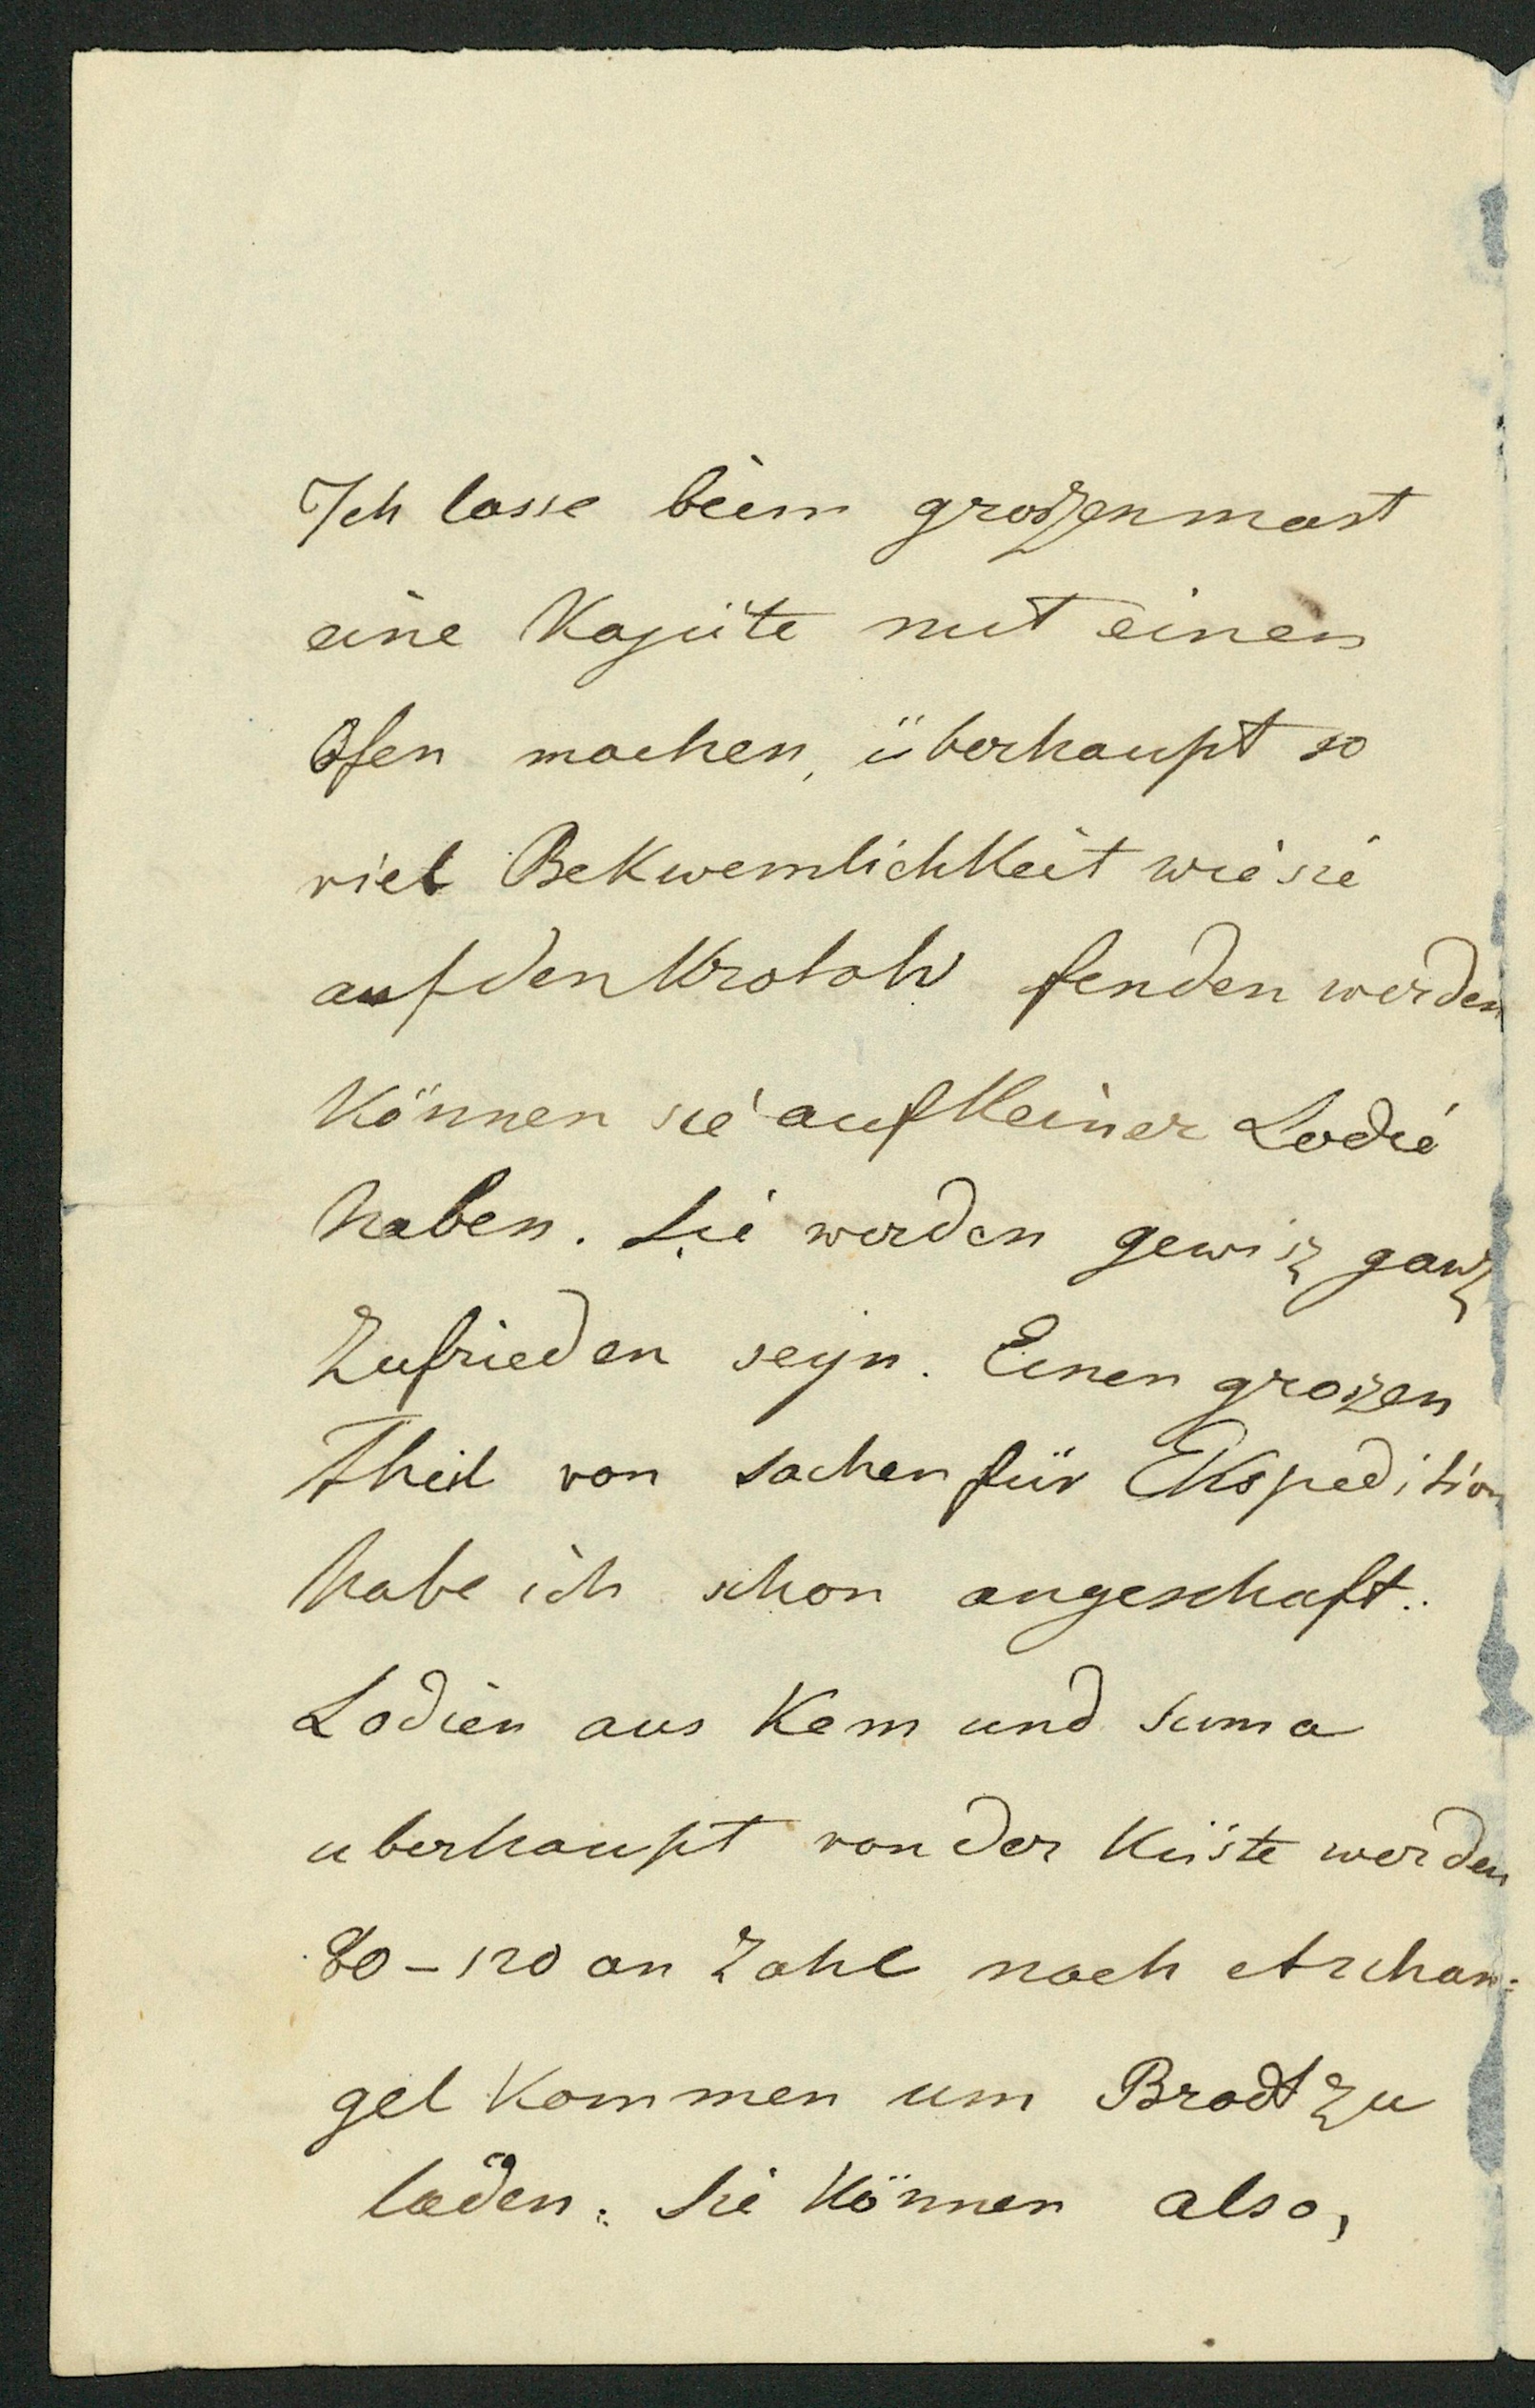 Ich lasse beim großenmast
eine Kajüte mit einen
Ofen machen, überhaupt so
viel Bekwemlichkeit wie sie
auf den Krotow fenden werden
können sie auf keiner Lodie
haben. Sie werden gewiß ganz
zufrieden seyn. Einen großen
Theil von sachen für Ekspedition
habe ich schon angeschaft.
Lodien aus Kem und Suma
uberhaupt von der Küste werden
80-120 an Zahl nach Archan:
gel kommen um Brodt zu
laden. Sie können also,